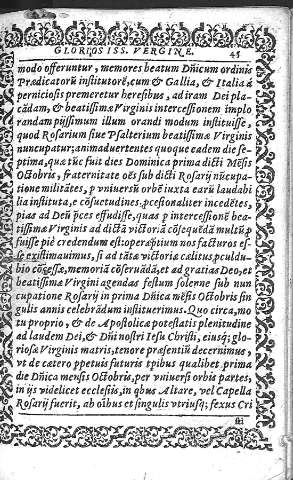 GLORIOSISS. VERGINE. 45
modo offeruntur, memores beatum Dñicum ordinis
Prædicatorũ institutorẽ, cum & Gallia, & Italia á
perniciosis premeretur heresibus, ad iram Dei pla-
cãdam, & beatissimæ Virginis intercessionem implo
randam pijssimum illum orandi modum instituisse,
quod Rosarium siue Psalterium beatissimæ Virginis
nuncupatur; animaduertentes quoque eadem die se-
ptima, quæ tũc fuit dies Dominica prima dicti Mẽsis
Octobris, fraternitate oẽs sub dicti Rosarij nũcupa-
tione militãtes, p vniuersũ orbẽ iuxta earũ laudabi
lia instituta, e cõsuetudines, pcessionaliter incedẽtes,
pias ad Deũ pces effudisse, quas p intercessionẽ bea-
tissimæ Virginis ad dictã victoriã cõsequẽdã multũ p
fuisse piè credendum est: operæptium nos facturos es-
se existimauimus, si ad tãtæ victoriæ cælitus pculdu-
bio cõcessæ, memoriã cõseruãdã, et ad gratias Deo, et
beatissimæ Virgini agendas festum solenne sub nun
cupatione Rosarij in prima Dñica mẽsis Octobris sin
gulis annis celebrãdum institueremus. Quo circa, mo
tu proprio, & de Apostolicæ potestatis plenitudine
ad laudem Dei, & Dñi nostri Iesu Christi, eiusq; glo-
riosæ Virginis matris, tenore præsentiũ decernimus,
vt de cætero ppetuis futuris tpibus qualibet prima
die Dñica mensis Octobris, per vniuersi orbis partes,
in ijs videlicet ecclesijs, in qbus Altare, vel Capella
Rosarij fuerit, ab oĩbus et singulis vtriusq; sexus Cri
sti